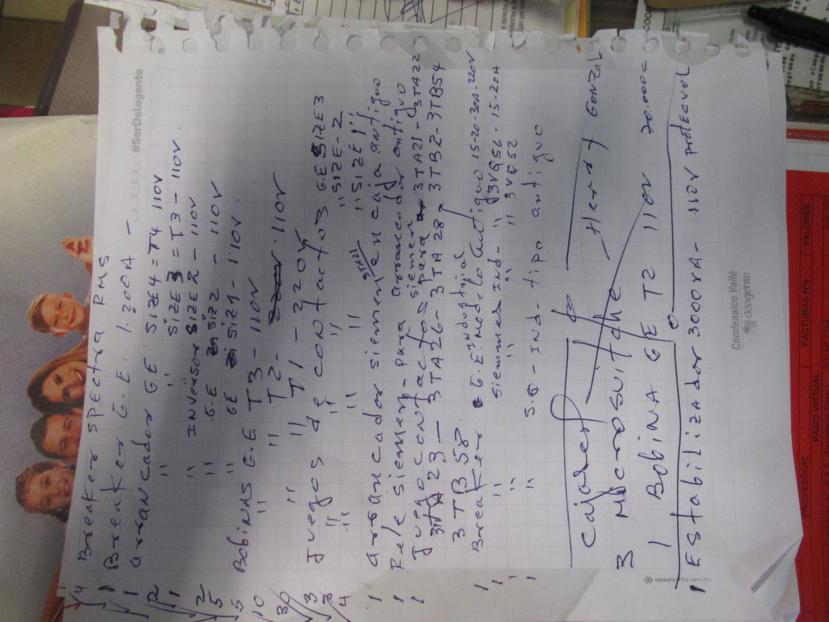 #SerDelagente
4 Breaker spectra RMS
1 Breaker G.E. 1.200A -
1 arrancador GE SIZE4 = T4 110V
2 " " SIZE3 = T3 - 110V.
1 " INVersor SIZE 2 - 110V
2 " G.E SIZ2 - 110V
5 " GE SIZ1 - 110V.
5 BobiNAS G.E T3 - 110V
10 " " T2 - 110V
30 " " T1 - 220V
3 Juegos de contactos G.E SIZE3
" " " SIZE-2
4 " " " SIZE 1"
1 arrancador siemens en caja antiguo
1 Rele siemens - para arrancador antiguo
1 Juego contactos siemens para 3TA21 - 3TA22
3TA23 - 3TA26 - 3TA28, 3TB2 - 3TB54
3TB58.
Breaker G.E industrial modelo antiguo 15-20-30A-220V
1 " siemens Ind - " 3VQ56 - 15-20A
1 " " " " 3VQ52
1 " S.Q - Ind - tipo antiguo
Henry Gonzal
3 Microsuitche
1 BobiNA GE T2 110V 20.000=
1 Estabilizador 3000VA - 110V protecvol
Comfenalco Valle
delagente
PROVEEDOR
PAGO VIRTUAL
FACTURAS Nºs
VALORES